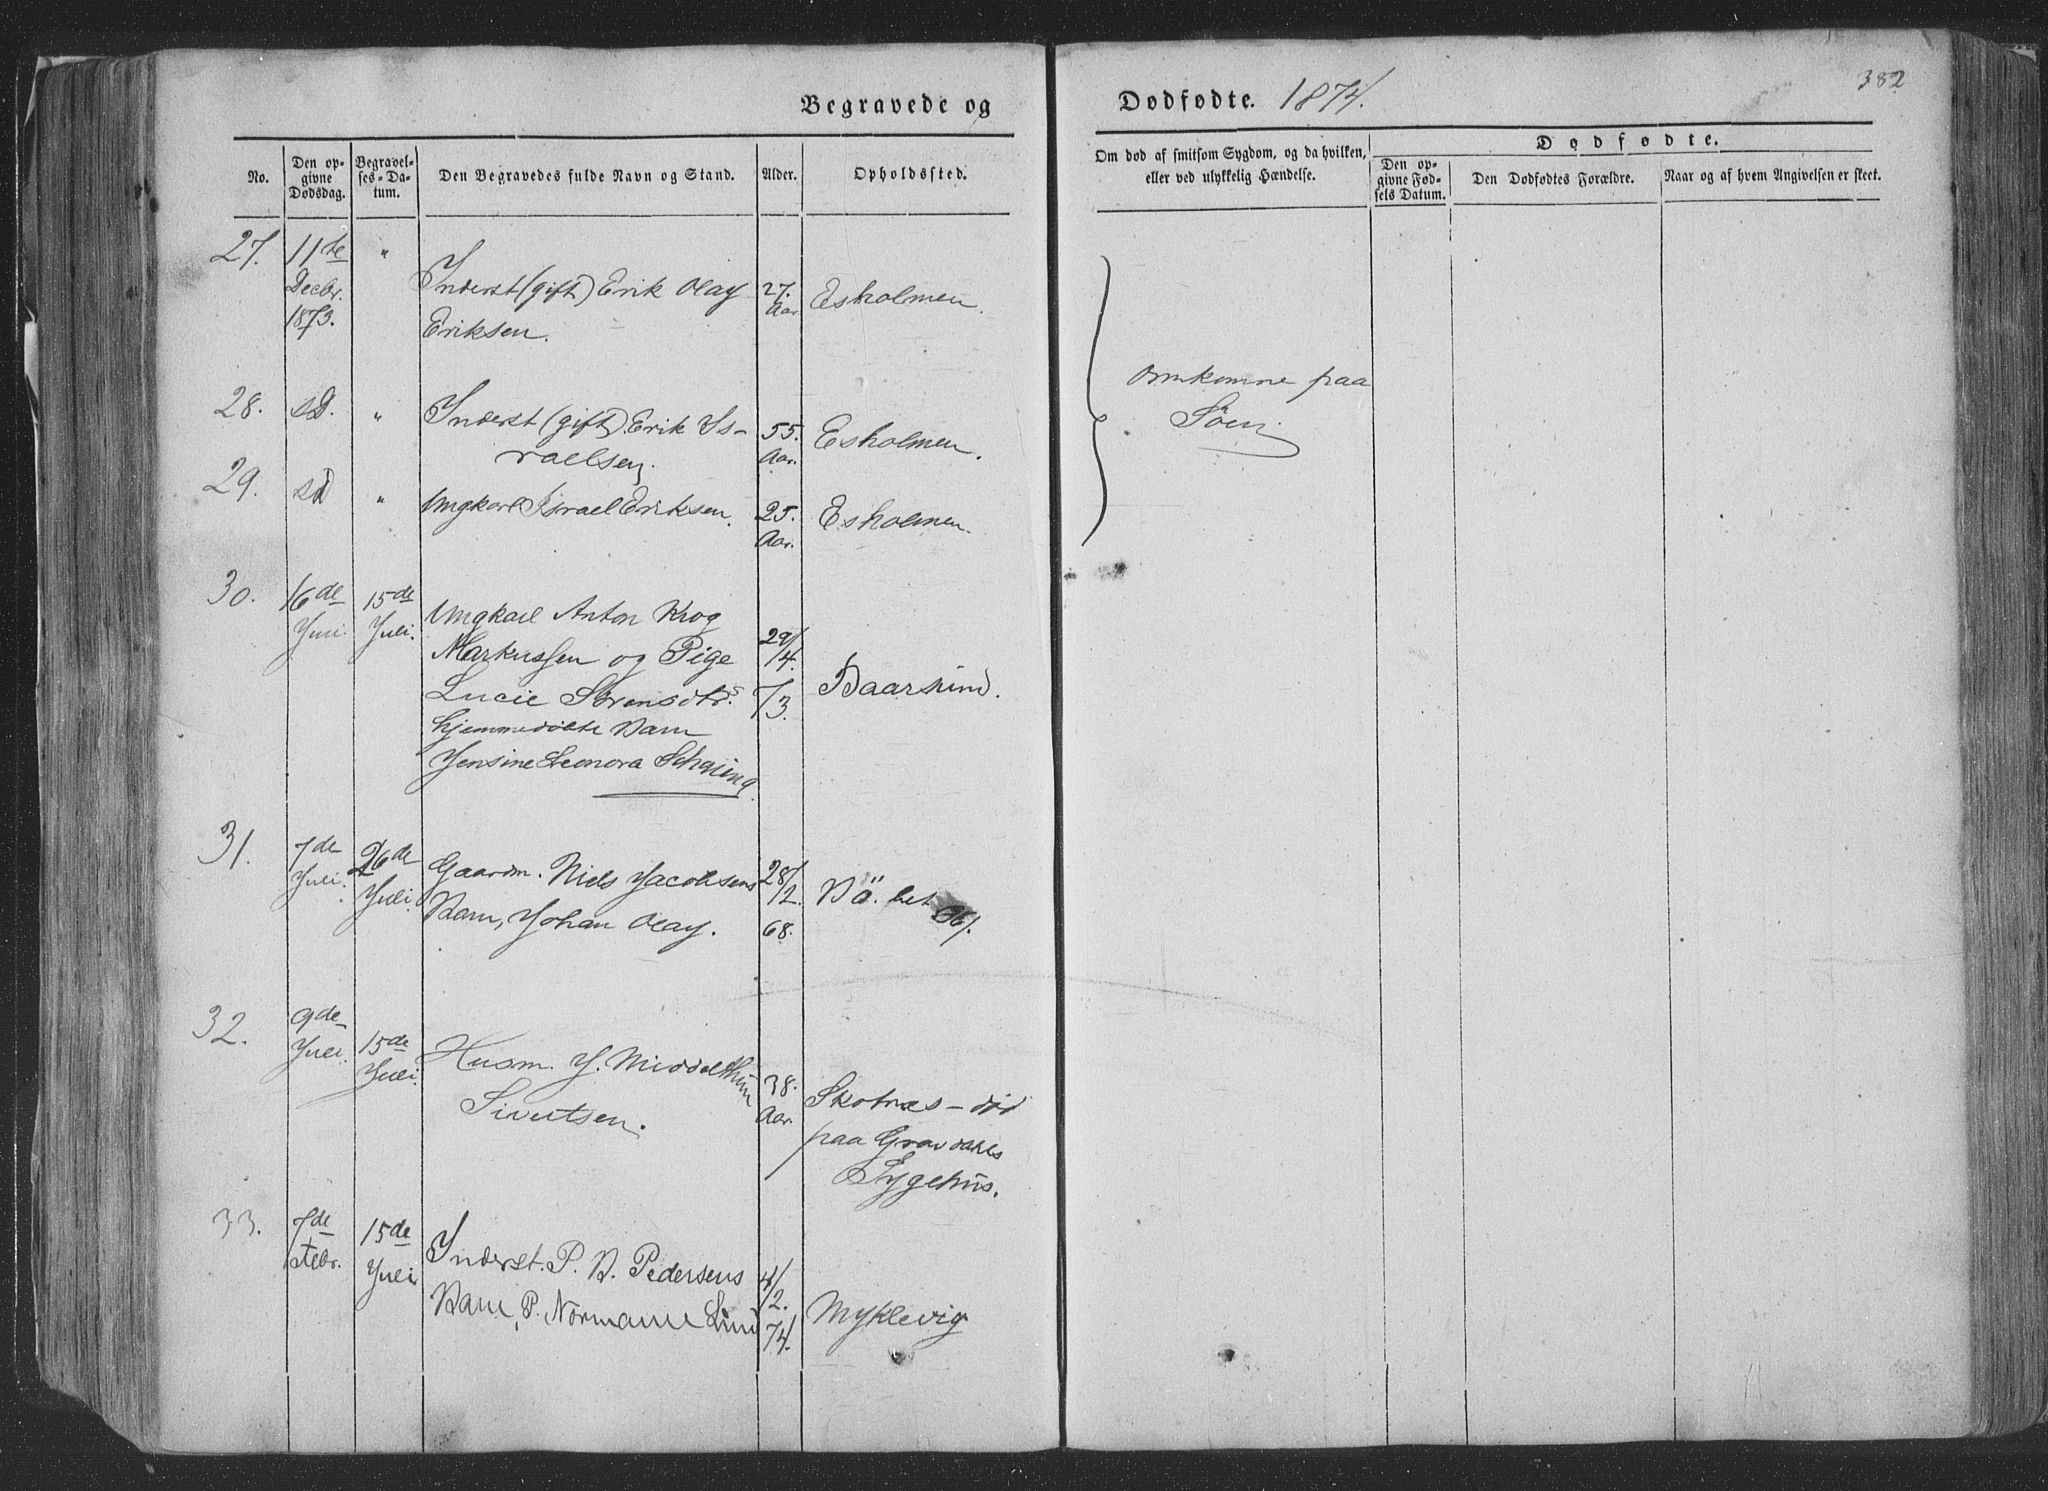 Begravede og
Dødfødte. 1874.
382
No.
Den opgivne Dødsdag.
Begravelses-Datum.
Den Begravedes fulde Navn og Stand.
Alder.
Opholdssted.
Om død af smitsom Sygdom, og da hvilken,
eller ved ulykkelig Hændelse.
Dødfødte.
Den opgivne Fødsels Datum.
Den Dødfødtes Forældre.
Naar og af hvem Angivelsen er skeet.
27. 11te "
Decbr.
1873.
Inderst (gift) Erik Olay 27. Esholmen.
Eriksen. Aar
omkomne paa
Söen.
28. sD. " Inderst (gift) Erik Is- 55. Esholmen.
raelsen. Aar.
29. sD " Ungkarl Israel Eriksen. 25. Esholmen.
Aar.
30. 16de 15de
Juni. Juli.
Ungkarl Anton Krog
Markussen og Pige 29/14.
Lucie Sörensdtrs 73. Baarsund.
hjemmedöbte Barn
Jensine Leonora Schjeing
31. 7de 26de
Juli. Juli.
Gaardm. Niels Jacobsens 28/12. Bö. bet
Barn, Johan Olay. 68. 36/.
32. 9de 15de
Juli. Juli.
Husm. J. Middelthun 38. Skotnæs - död
Sivertsen. Aar. paa Gravdahls
Sygehus.
33. 7de 15de
Febr. Juli
Inderst. P. B. Pedersens 4/2.
Barn, P. Normann Lund 74. Myklevig